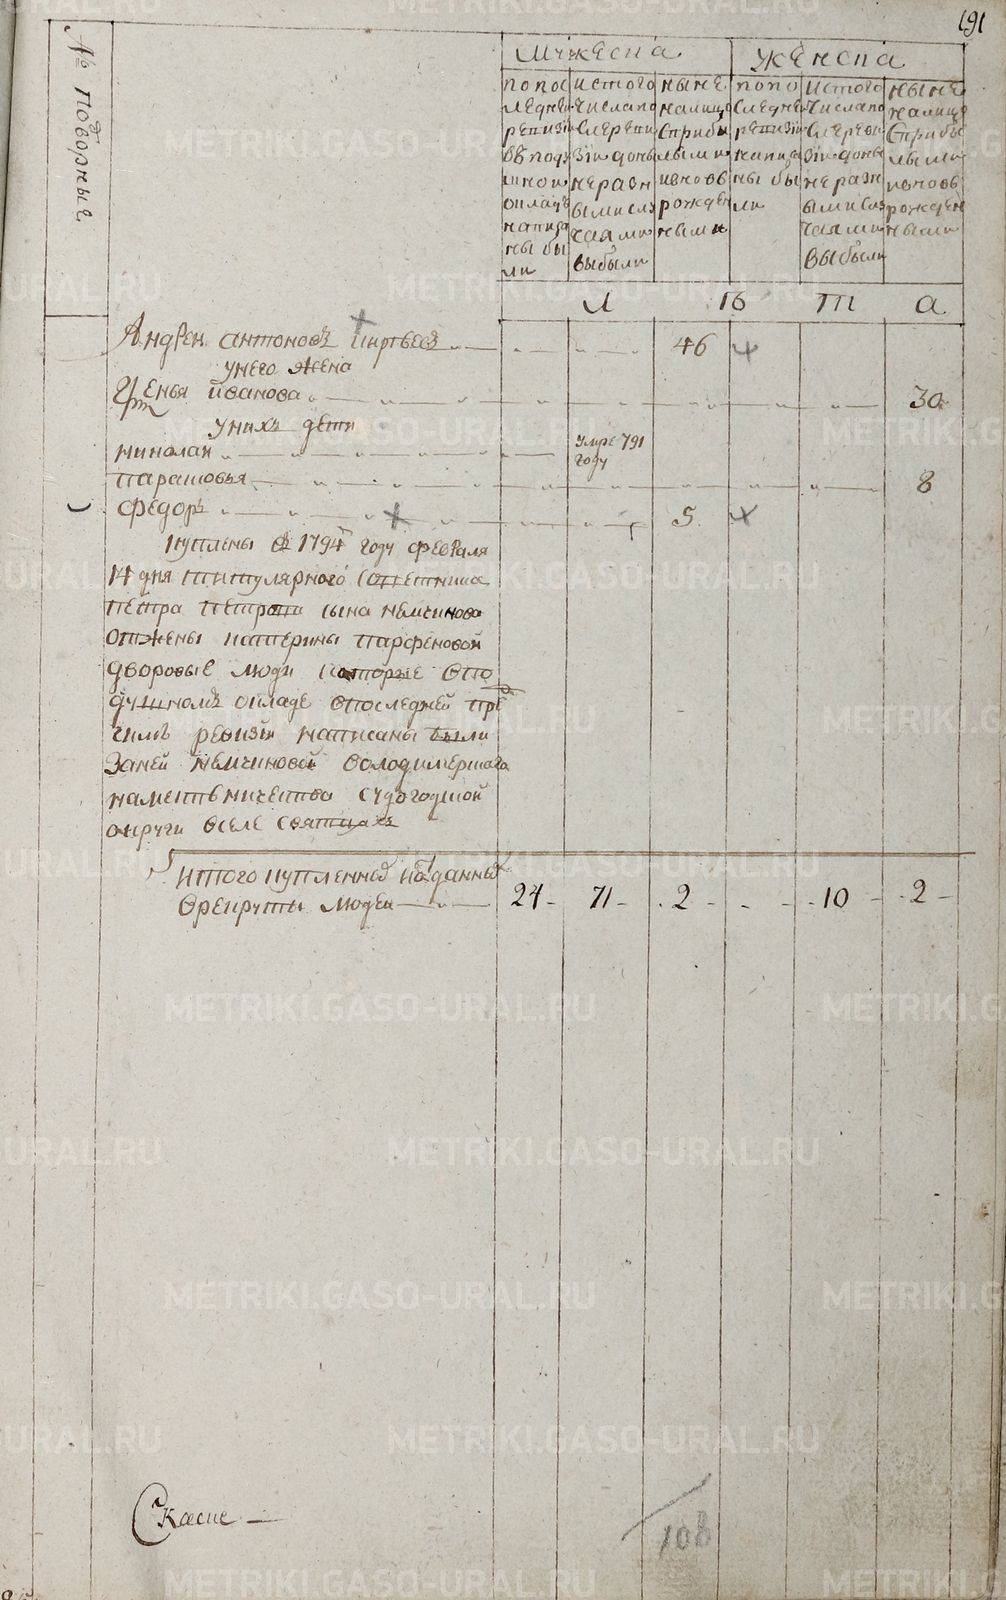 191
№ подворные
мужеска
женска
попос
ледней
ревизiи
в под
уш
ной
окладъ
написа
ны бы
ли
истого
числапо
слеревизiи
до ны
не разн
ыми слу
чаями
выбыли
ныне
налицо
с прибы
лыми
ивновь
рожден
ными
попо
следней
ревизiи
написа
ны бы
ли
истого
числапо
слереви
зiи доны
не разн
ыми слу
чаями
выбыли
ныне
налицо
с прибы
лыми
ивновь
рожден
ными
л ѣ т а
Андреи антоновъ 46
унего жена
иванова 30
унихъ дети
николаи умре 791
году
парасковья 8
федоръ 5
куплены в 1794 году февраля
14 дня титулярного советника
петра петрова сына немчинова
отжены катерины парфеновой
дворовые люди которые впо
душномъ окладе впоследней пре
ревизiи написаны были
заней немчиновой володимерскаго
наместьничества судогодской
округи вселе святцахъ
итого купленных и отданных
врекруты людеи 24 71 2 10 2
Скаске
108
METRIKI.GASO-URAL.RU